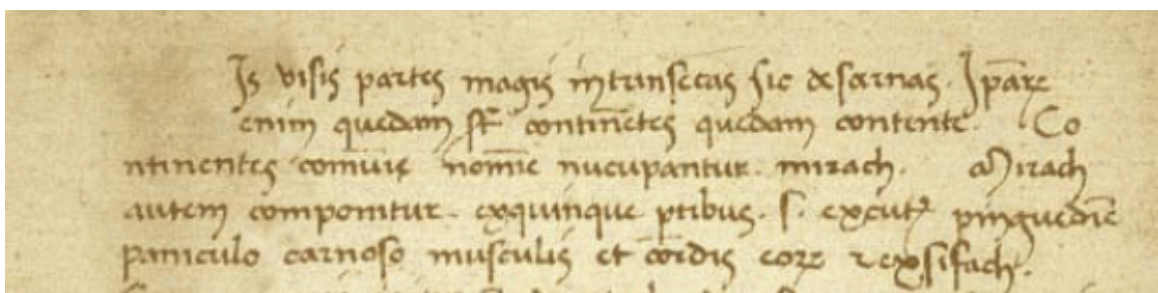 Is visis partes magis intrinsecas sic descernas. Ip̄arꝝ
enim quedam st̄ contin̄etes quedam contente. Co
ntinentes comuis nomīe nucupantur. mirach. Mirach
autem componitur. exquinque ptibus. s. excute pinguedīe
paniculo carnoso musculis et cordis eorꝝ & ex sifach.